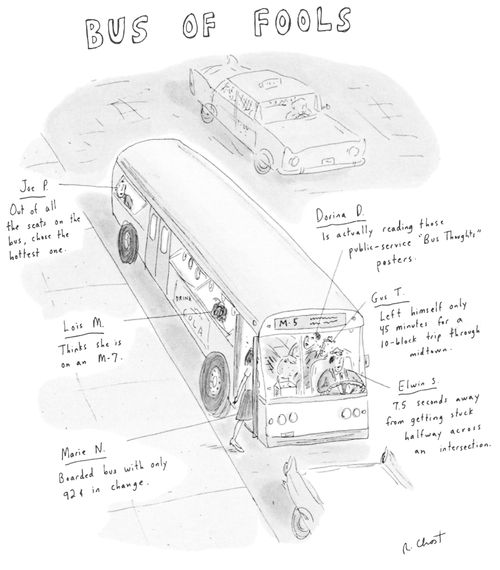 BUS OF FOOLS
Joe P.
Out of all
the seats on the
bus, chose the
hottest one.
Dorina D.
Is actually reading those
public-service "Bus Thoughts"
posters.
Gus T.
Left himself only
45 minutes for a
10-block trip through
midtown.
Lois M.
Thinks she is
on an M-7.
DRINK
COLA
M-5
Elwin S.
7.5 seconds away
from getting stuck
halfway across
an intersection.
Marie N.
Boarded bus with only
92¢ in change.
R. Chast